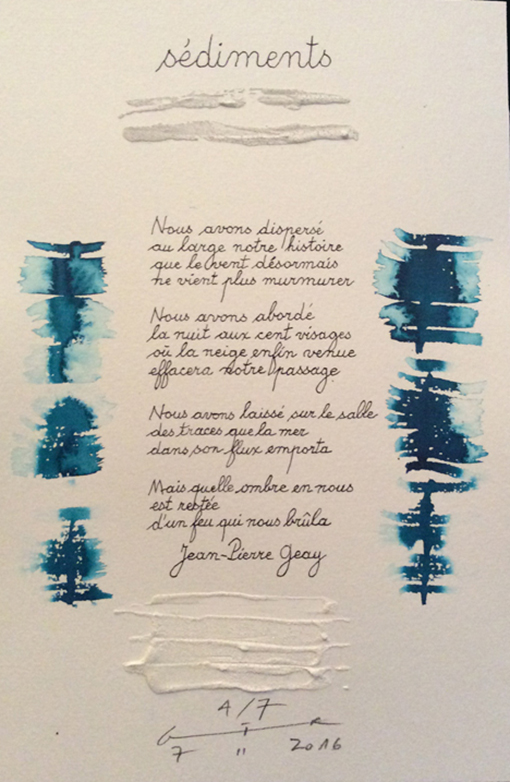 sédiments
Nous avons dispersé
au large notre histoire
que le vent désormais
ne vient plus murmurer
Nous avons abordé
la nuit aux cent visages
où la neige enfin venue
effacera notre passage
Nous avons laissé sur le salle
des traces que la mer
dans son flux emporta
Mais quelle ombre en nous
est restée
d'un feu qui nous brûla
Jean-Pierre Geay
4/7
7 " 2016